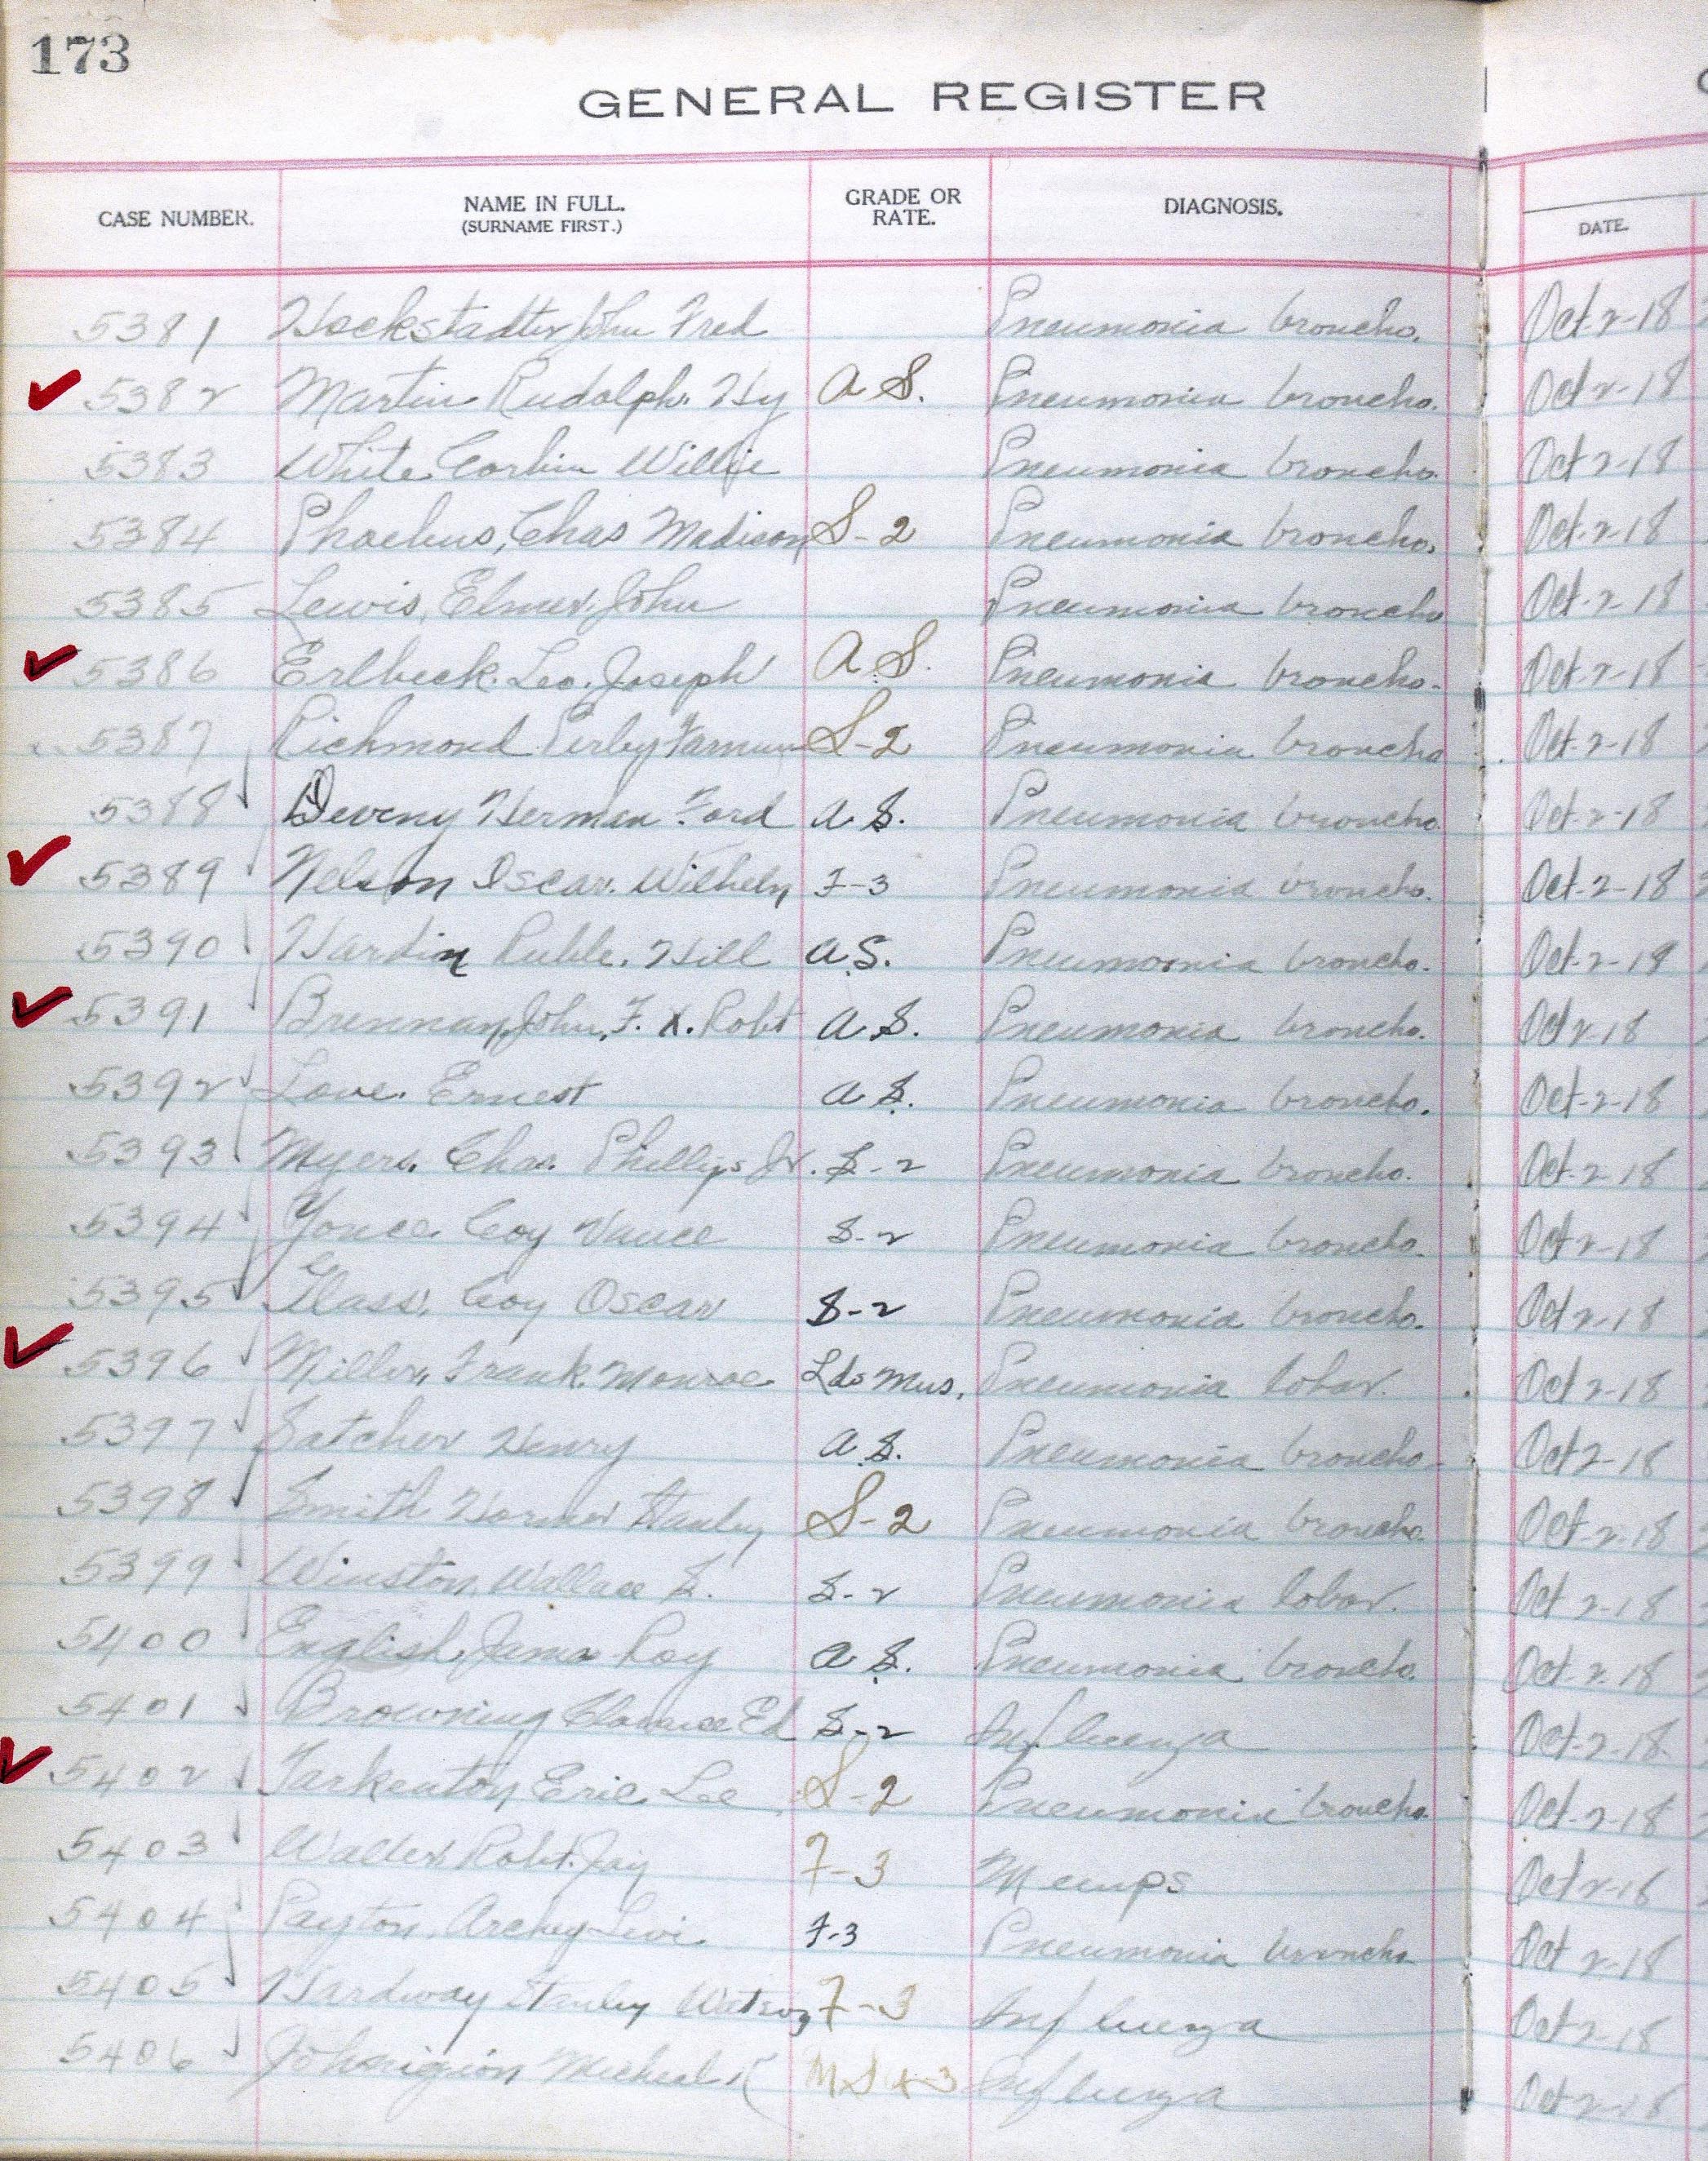 173
GENERAL REGISTER
CASE NUMBER. NAME IN FULL. (SURNAME FIRST.) GRADE OR RATE. DIAGNOSIS. DATE.
5381 Hockstadter John Fred Pneumonia broncho. Oct-2-18
5382 Martin Rudolph. Hy A S. Pneumonia broncho. Oct 2-18
5383 White Corbin Willie Pneumonia broncho. Oct 2-18
5384 Phoebus, Chas Madison S-2 Pneumonia broncho. Oct-2-18
5385 Lewis, Elmer John Pneumonia broncho Oct-2-18
5386 Erlbeck. Leo. Joseph A S. Pneumonia broncho. Oct-2-18
5387 Richmond Perley S-2 Pneumonia broncho Oct-2-18
5388 Deveny Herman Ford A S. Pneumonia broncho. Oct-2-18
5389 Nelson Oscar. Wilhelm F-3 Pneumonia broncho. Oct-2-18
5390 Hardin Ruble. Hill A.S. Pneumonia broncho. Oct-2-18
5391 Brennan, John, F. X. Robt A S. Pneumonia broncho. Oct 2-18
5392 Love. Ernest A S. Pneumonia broncho. Oct-2-18
5393 Myers. Chas. Phillips Jr. S-2 Pneumonia broncho. Oct-2-18
5394 Yonce. Coy Vance S-2 Pneumonia broncho. Oct 2-18
5395 Glass, Coy Oscar S-2 Pneumonia broncho. Oct 2-18
5396 Miller, Frank. Monroe Lds Mus. Pneumonia lobar. Oct 2-18
5397 Satcher Henry A S. Pneumonia broncho. Oct 2-18
5398 Smith Stanley S-2 Pneumonia broncho. Oct-2-18
5399 Winston, Wallace S. S-2 Pneumonia lobar. Oct 2-18
5400 English, James Roy A S. Pneumonia broncho. Oct 2-18
5401 Browning Clarence Ed S-2 Influenza Oct-2-18
5402 Tarkenton, Eric. Lee S-2 Pneumonia broncho. Oct-2-18
5403 Robt. Jay F-3 Mumps Oct 2-18
5404 Payton, Archey Levi. F-3 Pneumonia broncho Oct 2-18
5405 Hardway Stanley Watson F-3 Influenza Oct 2-18
5406 Micheal Influenza Oct 2-18